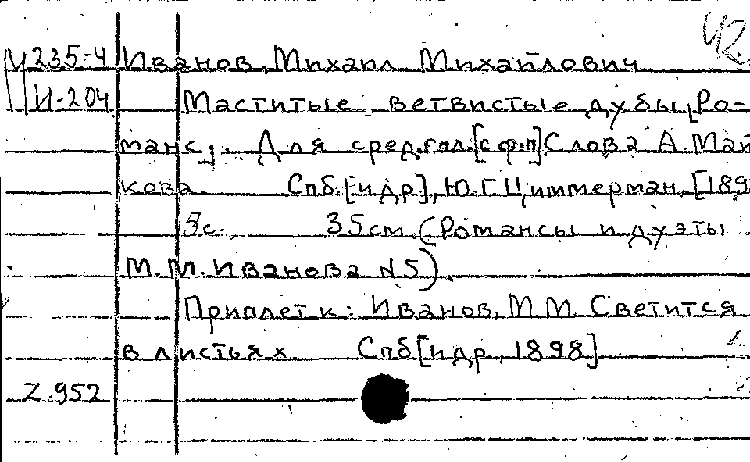 42
У 235-4 Иванов, Михаил Михайлович
И-204 Маститые ветвистые дубы [Ро-
манс]. Для сред. гол. [с ф.п] Слова А. Май
кова. Спб. [и др], Ю. Г. Циммерман, [189
5 с. 35 см. (Романсы и дуэты
М. М. Иванова N5).
Приплет к: Иванов, М. М. Светится
в листьях Спб [и др, 1898]
Z.952